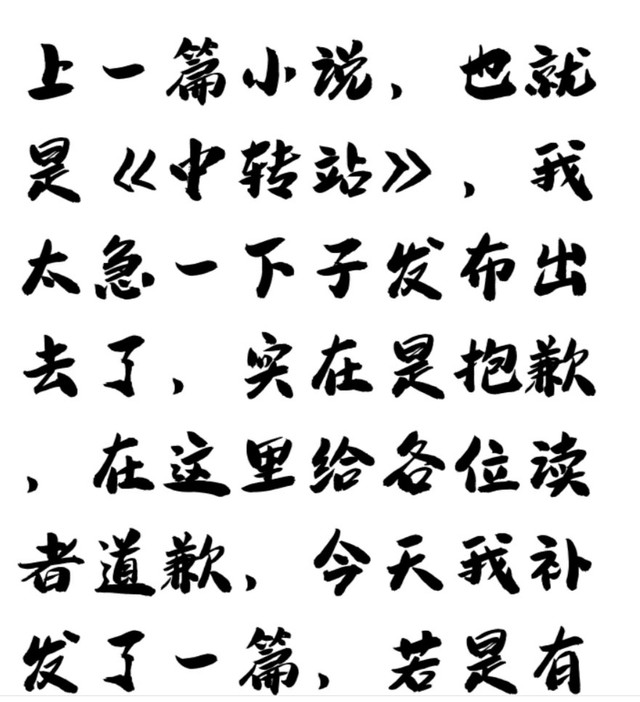 上一篇小说，也就
是《中转站》，我
太急一下子发布出
去了，实在是抱歉
，在这里给各位读
者道歉，今天我补
发了一篇，若是有